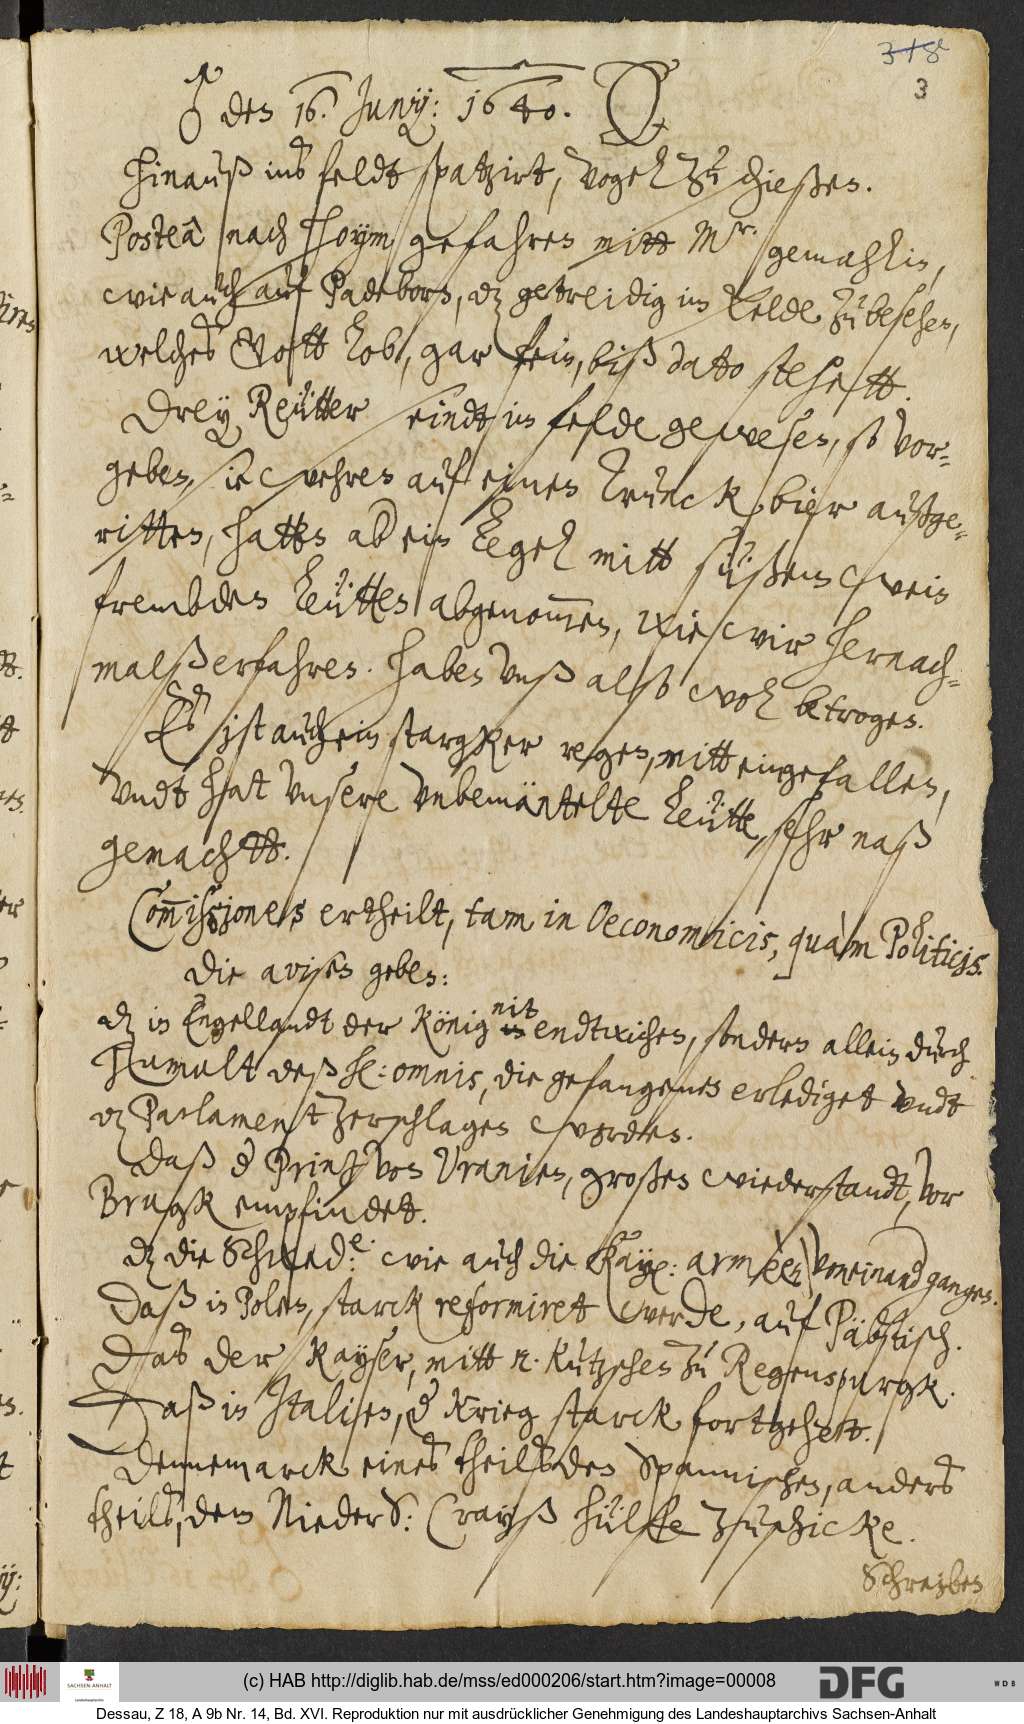 3
♂ den 16. Junij: 1640.
Hinauß ins feldt spatzirt, vogel zu schießen.
Postea nach Hoym gefahren mitt Mr. gemahlin,
wie auch auf Padeborn, dz getreidig im Felde zu besehen,
welches Gott lob, gar fein, biß dato stehett.
Drey Reütter seindt im felde gewesen, so vor-
geben, sie wehren auf einen Trunck bier außge-
ritten, hatten aber ein Legel mitt süßem wein
frembden leütten abgenommen, wie wir hernach-
malß erfahren. Haben unß also wol betrogen.
Es ist auch ein starcker regen, mitt eingefallen,
undt hat unsere unbemäntelte leütte, sehr naß
gemachtt.
Commissiones ertheilt, tam in Oeconomicis, quam Politicis.
Die avisen geben:
dz in Engellandt der König nit entwichen, sondern allein durch
Tumult deß H: omnis, die gefangenen erlediget undt
dz Parlament zerschlagen worden.
Daß der Printz von Uranien, großen wiederstandt, vor
Brugk empfindet.
dz die Schwed: wie auch die Kay: armèen voneinand gangen.
Daß in Polen, starck reformiret werde, auf Päbstisch.
Das der Kayser, mitt Kutzschen zu Regenspurgk.
Daß in Italien, der Krieg starck fortgehett.
Dennemarck eines theils den Spannischen, anders
theils, dem NiederS: Crayß hülffe zuschicke.
Schreiben
(c) HAB http://diglib.hab.de/mss/ed000206/start.htm?image=00008
SACHSEN-ANHALT
DFG
WDB
Dessau, Z 18, A 9b Nr. 14, Bd. XVI. Reproduktion nur mit ausdrücklicher Genehmigung des Landeshauptarchivs Sachsen-Anhalt